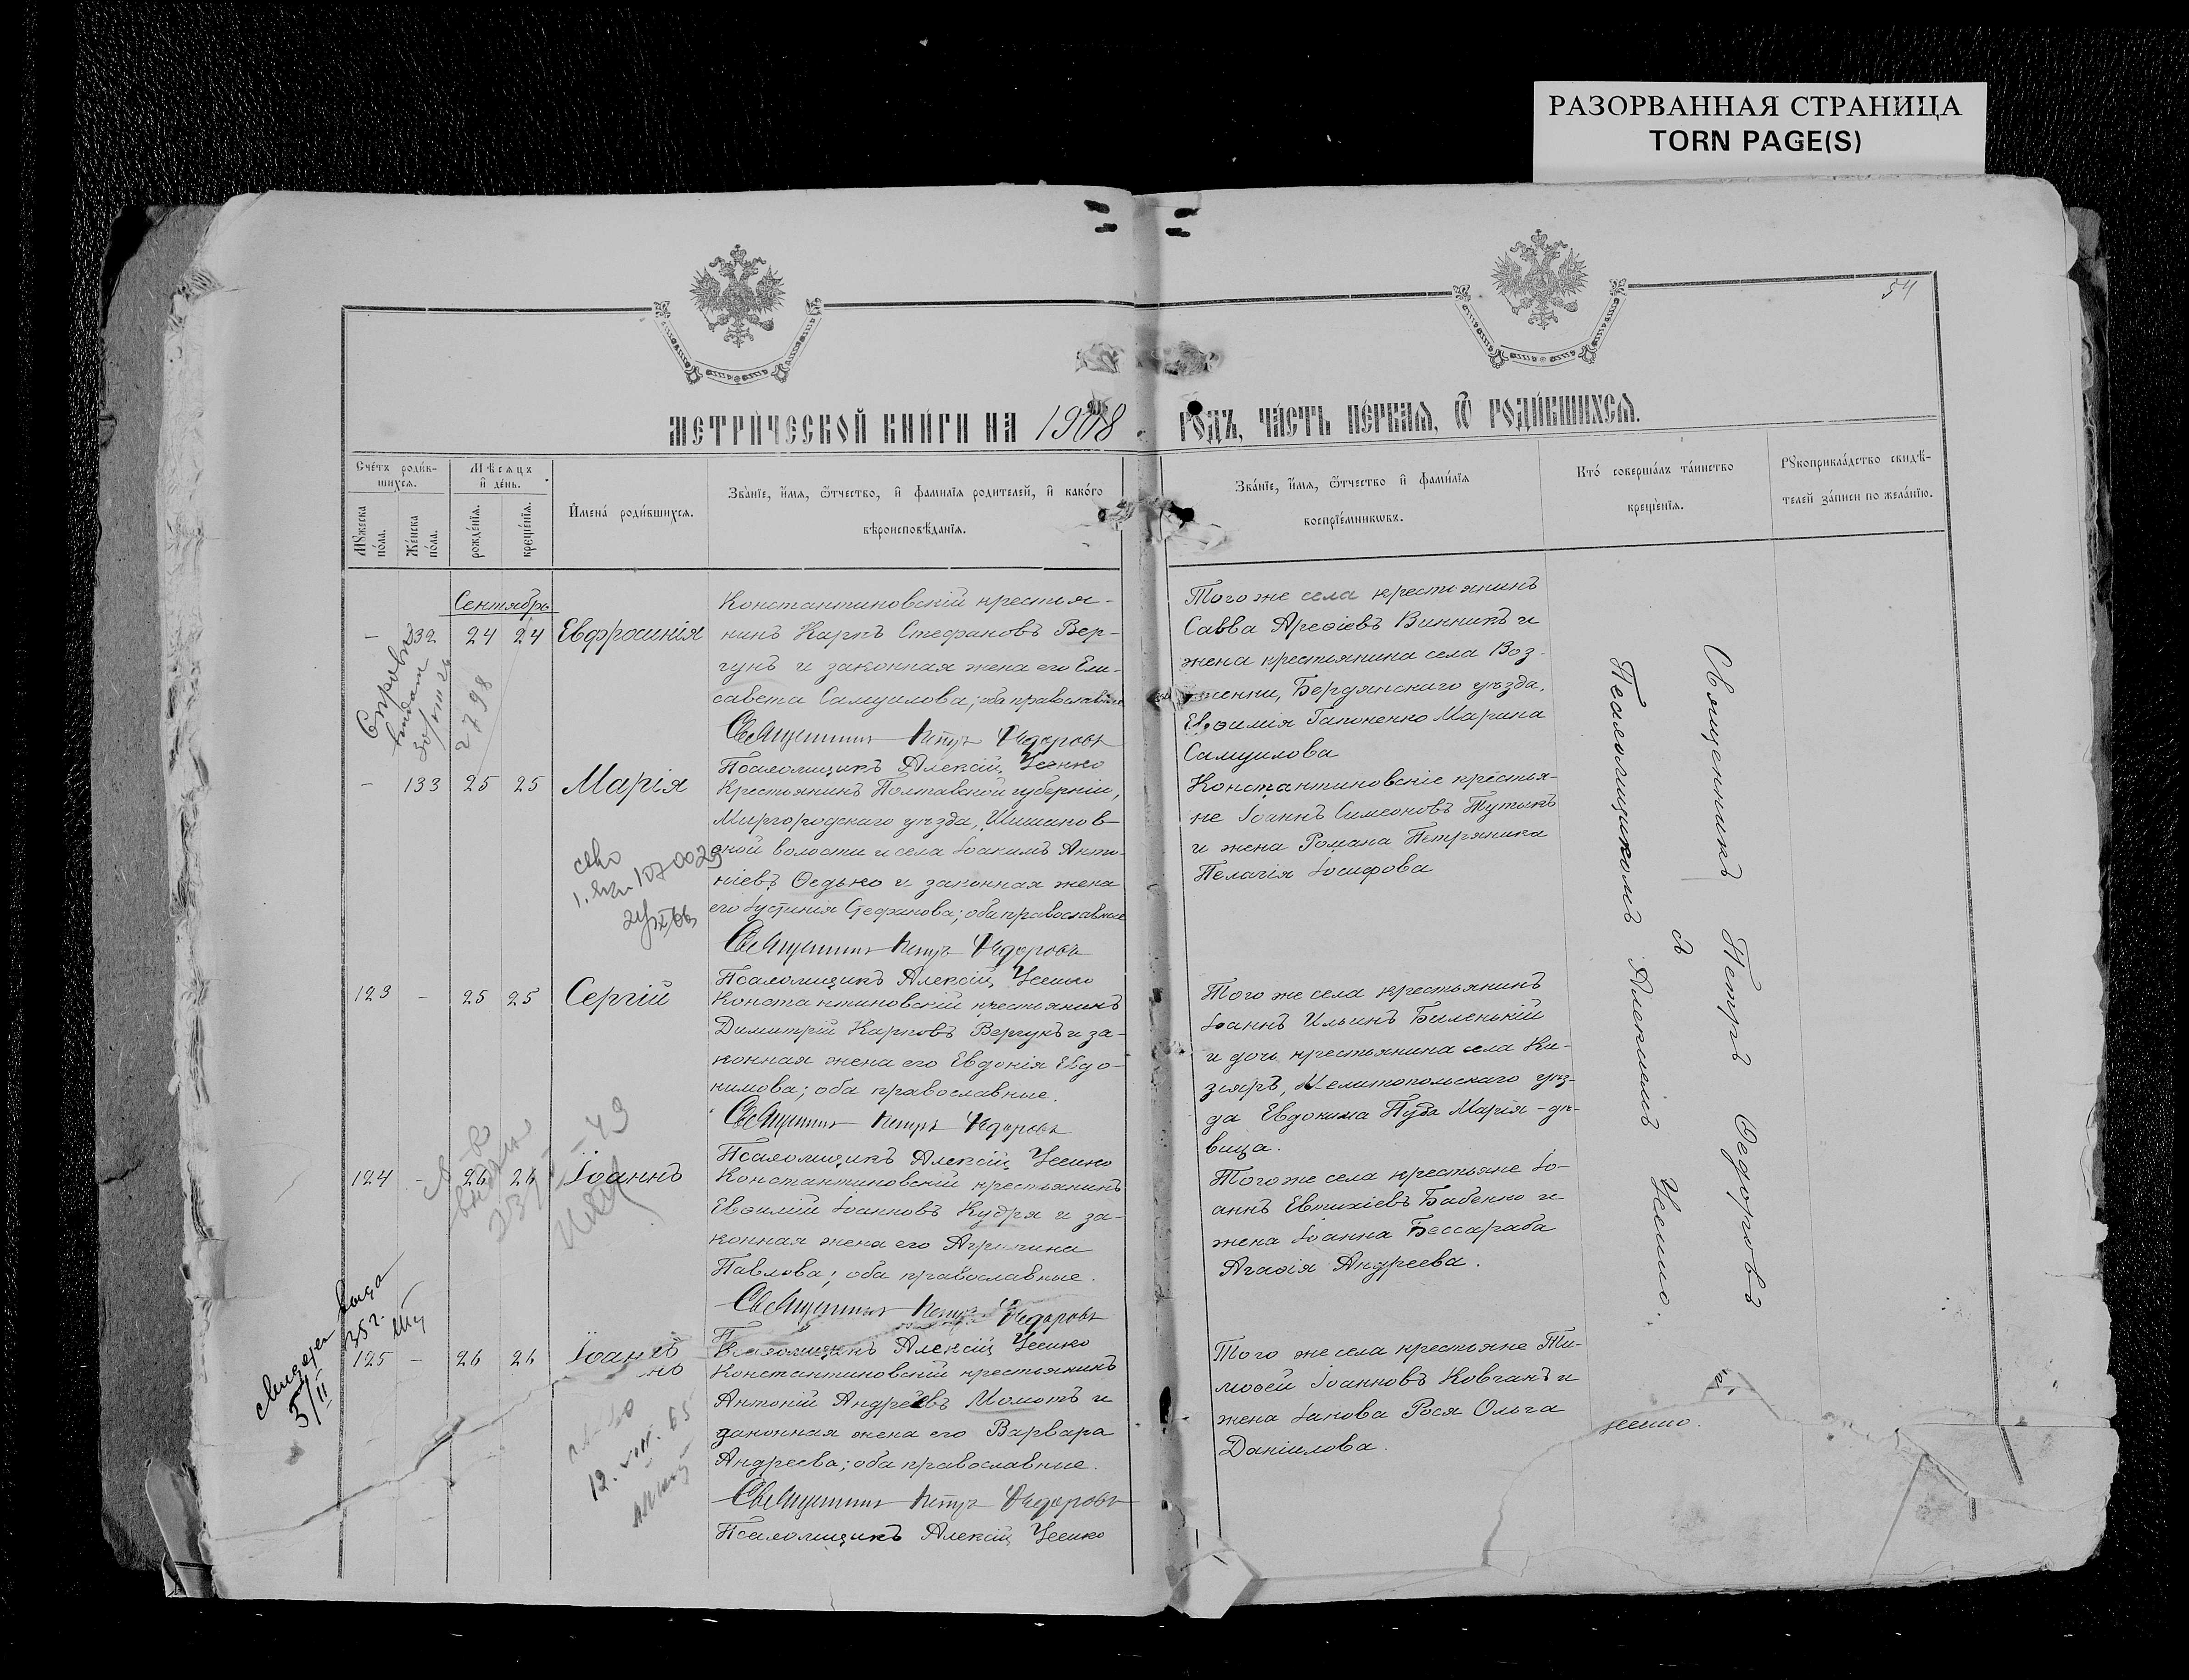 РАЗОРВАННАЯ СТРАНИЦА
TORN PAGE(S)
54
МЕТРИЧЕСКОЙ КНИГИ НА 1908 ГОДЪ, ЧАСТЬ ПЕРВАЯ, Ѿ РОДИВШИХСЯ.
Счетъ родив-
шихся.
Мѣсяцъ
и день.
Мꙋжеска
пола.
Женска
пола.
рожденїя.
крещенїя.
Имена родившихся.
Званїе, имя, ѿчество, и фамилїя родителей, и какого
вѣроисповѣданїя.
Званїе, имя, ѿчество и фамилїя
воспрїемниковъ.
Кто совершалъ таинство
крещенїя.
Рꙋкоприкладство свидѣ-
телей записи по желанїю.
Сентябрь
- 132 24 24 Евфросинія
Константиновскій крестья-
нинъ Карпъ Стефановъ Вер-
гунъ и законная жена его Ели-
савета Самуилова; оба православные
Священникъ Петръ Федоровъ
Псаломщикъ Алексій Усенко
Того же села крестьянинъ
Савва Арефіевъ Винникъ и
жена крестьянина села Воз-
Бердянскаго уѣзда,
Евѳимія Гапоненко Марина
Самуилова
2798
- 133 25 25 Марія
Крестьянинъ Полтавской губерніи,
Миргородскаго уѣзда, Шишанов-
ской волости и села Іоакимъ Анто-
ніевъ Ѳедько и законная жена
его Іустинія Стефанова; оба православные
Священникъ Петръ Федоровъ
Псаломщикъ Алексій Усенко
Константиновскіе крестья-
не Іоаннъ Симеоновъ Тутыкъ
и жена Романа Петряника
Пелагія Іосифова
123 - 25 25 Сергій
Константиновскій крестьянинъ
Димитрій Карповъ Вергунъ и за-
конная жена его Евдокія Евдо-
кимова; оба православные.
Священникъ Петръ Федоровъ
Псаломщикъ Алексій Усенко
Того же села крестьянинъ
Іоаннъ Ильинъ Биленькій
и дочь крестьянина села Ки-
зіяръ, Мелитопольскаго уѣз-
да Евдокима Пуба Марія - дѣ-
вица.
124 - 26 26 Іоаннъ
Константиновскій крестьянинъ
Евѳимій Іоанновъ Кудря и за-
конная жена его Агриппина
Павлова; оба православные.
Священникъ Петръ Федоровъ
Псаломщикъ Алексій Усенко
Того же села крестьяне Іо-
аннъ Евтихіевъ Бабенко и
жена Іоанна Бессараба
Агаѳія Андреева.
125 - 26 26 Іоаннъ
Константиновскій крестьянинъ
Антоній Андреевъ Момотъ и
законная жена его Варвара
Андреева; оба православные.
Священникъ Петръ Федоровъ
Псаломщикъ Алексій Усенко
Того же села крестьяне Ти-
моѳей Іоанновъ Ковганъ и
жена Іакова Рося Ольга
Даніилова.
12. VIII. 65
Священникъ Петръ Ѳедоровъ
съ
Псаломщикомъ Алексіемъ Усенко.